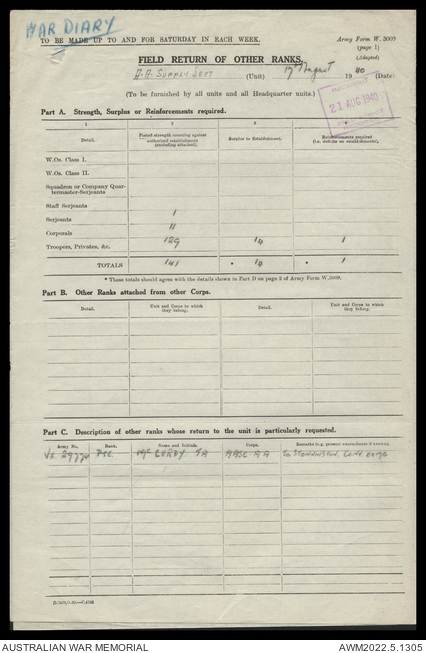 WAR DIARY
TO BE MADE UP TO AND FOR SATURDAY IN EACH WEEK.
Army Form W. 3009
(page 1)
(Adapted)
FIELD RETURN OF OTHER RANKS.
A.A. Supply Dept (Unit) 17th August 1940 (Date)
(To be furnished by all units and all Headquarter units.)
21 AUG 1940
Part A. Strength, Surplus or Reinforcements required.
1 2 3 4
Detail. Posted strength counting against authorized establishment (excluding attached). Surplus to Establishment. Reinforcements required (i.e. deficits on establishments).
W.Os. Class I.
W.Os. Class II.
Squadron or Company Quar-
termaster-Serjeants
Staff Serjeants
Serjeants 1
Corporals 11
Troopers, Privates, &c. 129 14 1
TOTALS 141 * 14 * 1
* These totals should agree with the details shown in Part D on page 2 of Army Form W.3009.
Part B. Other Ranks attached from other Corps.
Detail. Unit and Corps to which they belong. Detail. Unit and Corps to which they belong.
Part C. Description of other ranks whose return to the unit is particularly requested.
Army No. Rank. Name and Initials. Corps. Remarks (e.g., present whereabouts if known).
Pte. McCurdy AASC AA To Stonnington, Conv. Home
AUSTRALIAN WAR MEMORIAL
AWM2022.5.1305